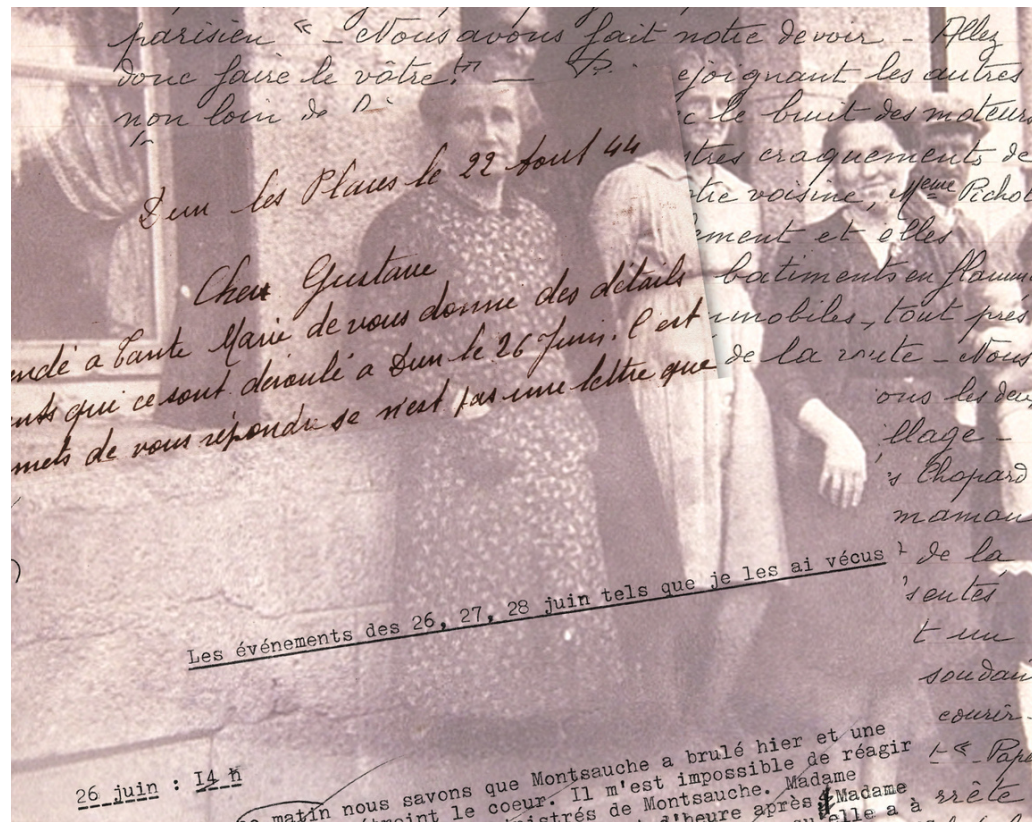 parisien « - Nous avons fait notre devoir - Allez
donc faire le vôtre! » -
ejoignant les autres
non loin de
c le bruit des moteurs
stres craquements de
otre voisine, Mme Pichot
ement et elles
batiments en flamm
immobiles, tout près
de la route - Nous
ons les deu
llage -
s Chopard
maman
de la
sentés
t un
soudain
courir
- « - Papa
rrête
Dun les Places le 22 Aout 44
Cher Gustave
andé a Tante Marie de vous donne des détails
nts qui ce sont déroulé a Dun le 26 Juin. C'est
mets de vous répondre se n'est pas une lettre que
Les événements des 26, 27, 28 juin tels que je les ai vécus
26 juin : 14 h
matin nous savons que Montsauche a brulé hier et une
étreint le coeur. Il m'est impossible de réagir
nistrés de Montsauche. Madame
d'heure après Madame
qu'elle a à